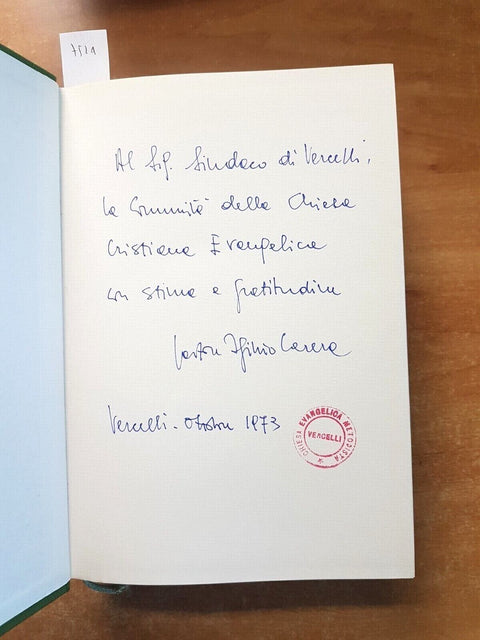 7521
Al Sig. Sindaco di Vercelli,
la Comunità della Chiesa
Cristiana Evangelica
con stima e gratitudine
Vercelli - Ottobre 1973
CHIESA EVANGELICA METODISTA
VERCELLI